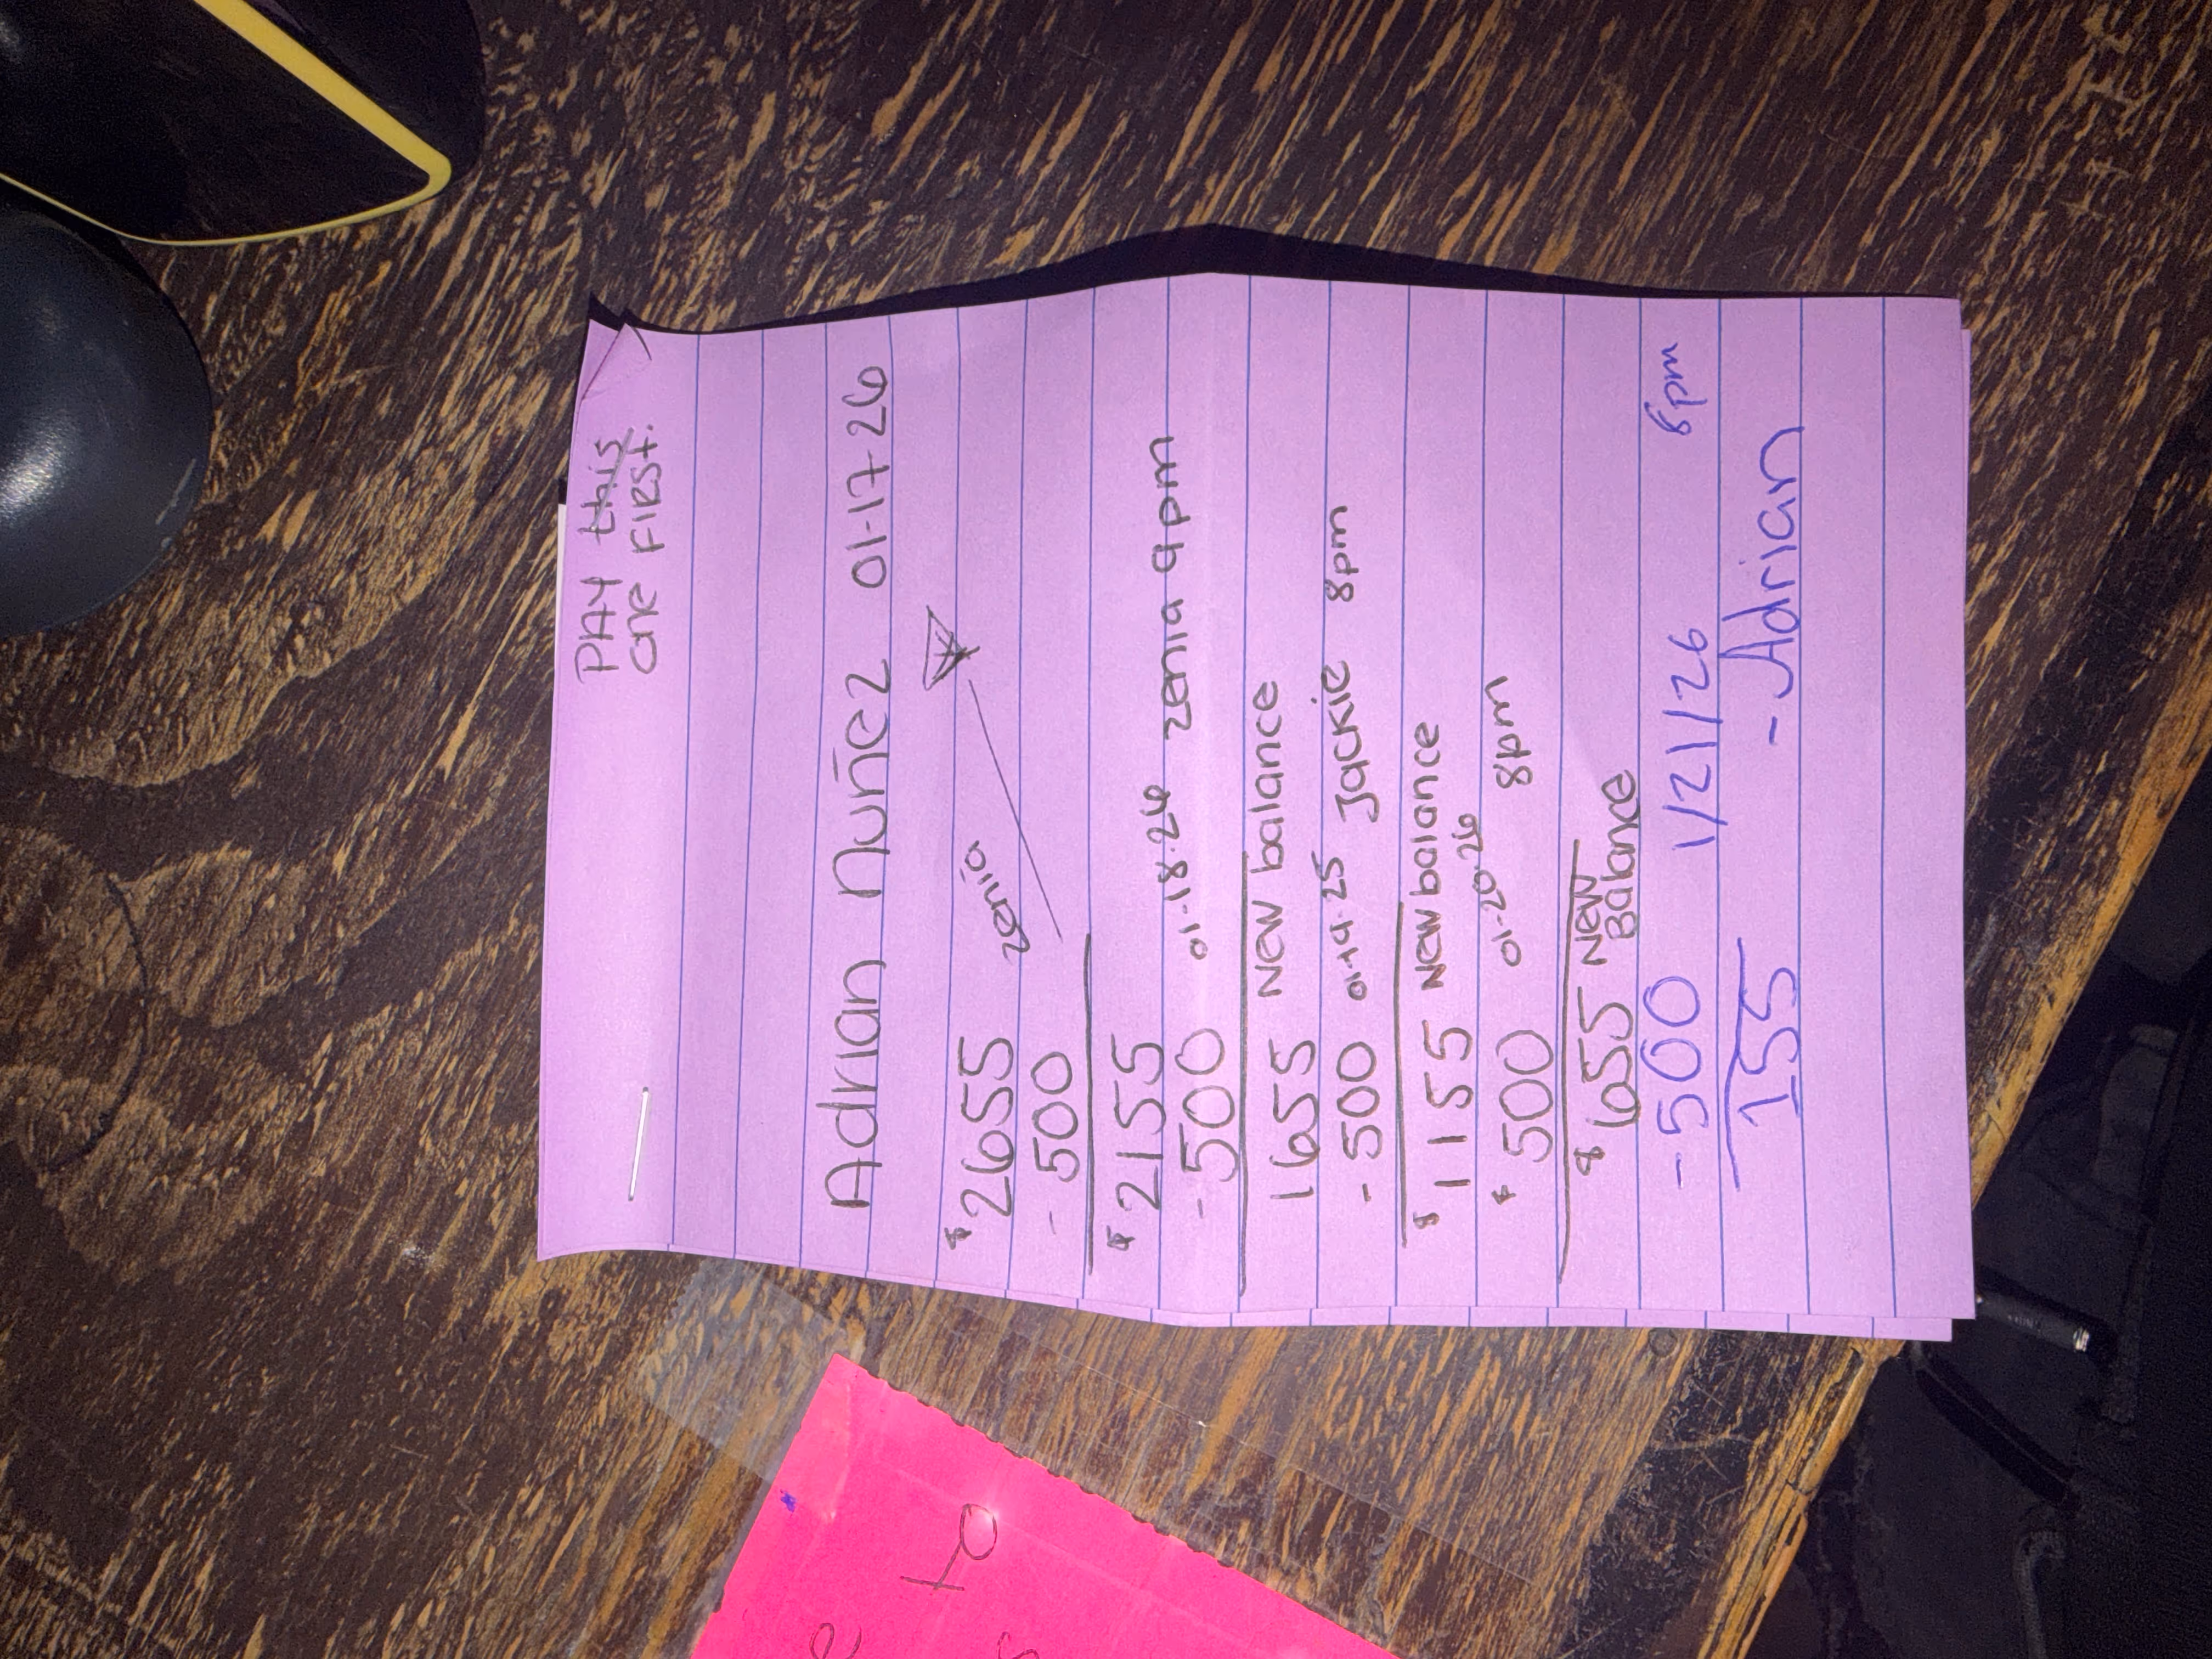 PAY this
one FIRST.
Adrian Nuñez 01-17-26
$2655 zenia
- 500
$2155
- 500 01-18-26 zenia 9pm
1655 New balance
- 500 01-19-25 Jackie 8pm
$1155 New balance
$500 01-20-26 8pm
$655 New Balance
- 500 1/21/26 8pm
155 - Adrian
TO